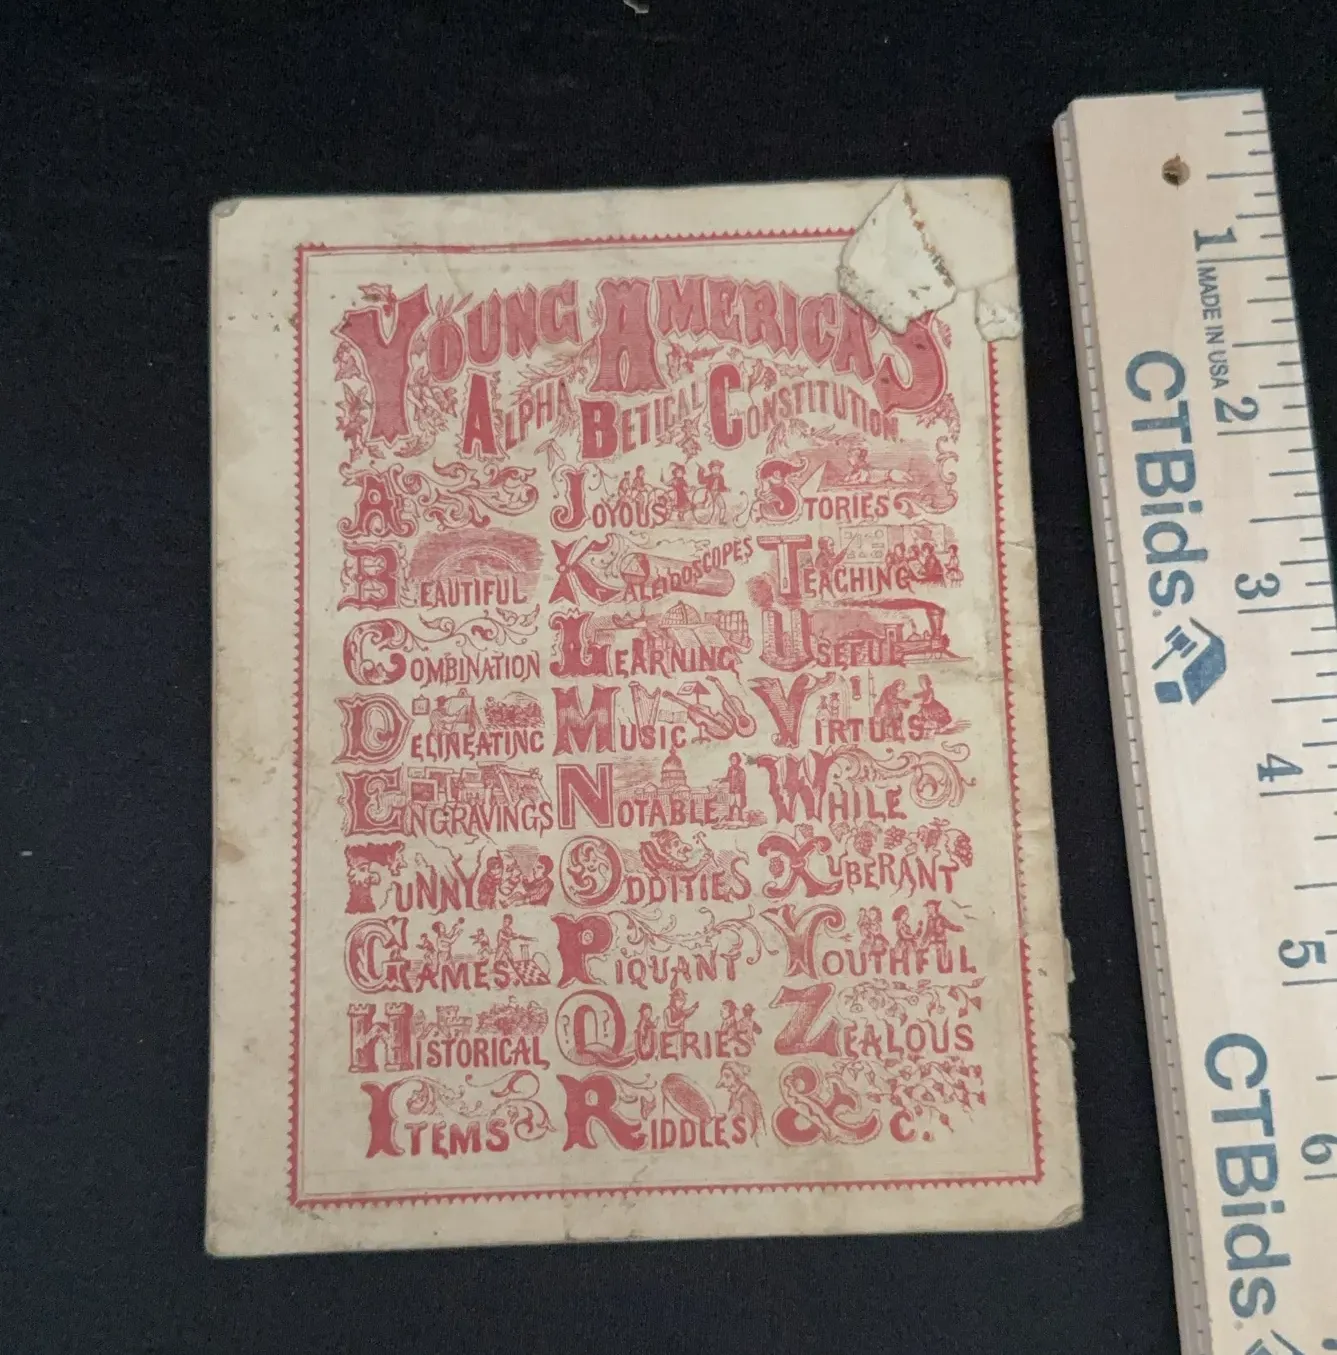 YOUNG AMERICA'S
ALPHA BETICAL CONSTITUTION.
A
BEAUTIFUL
COMBINATION
DELINEATING
ENGRAVINGS
FUNNY
GAMES
HISTORICAL
ITEMS
JOYOUS
KALEIDOSCOPES
LEARNING
MUSIC
NOTABLE
ODDITIES
PIQUANT
QUERIES
RIDDLES
STORIES
TEACHING
USEFUL
VIRTUES
WHILE
XUBERANT
YOUTHFUL
ZEALOUS
&c.
1
MADE IN USA
2
CTBids.
3
4
5
CTBids.
6